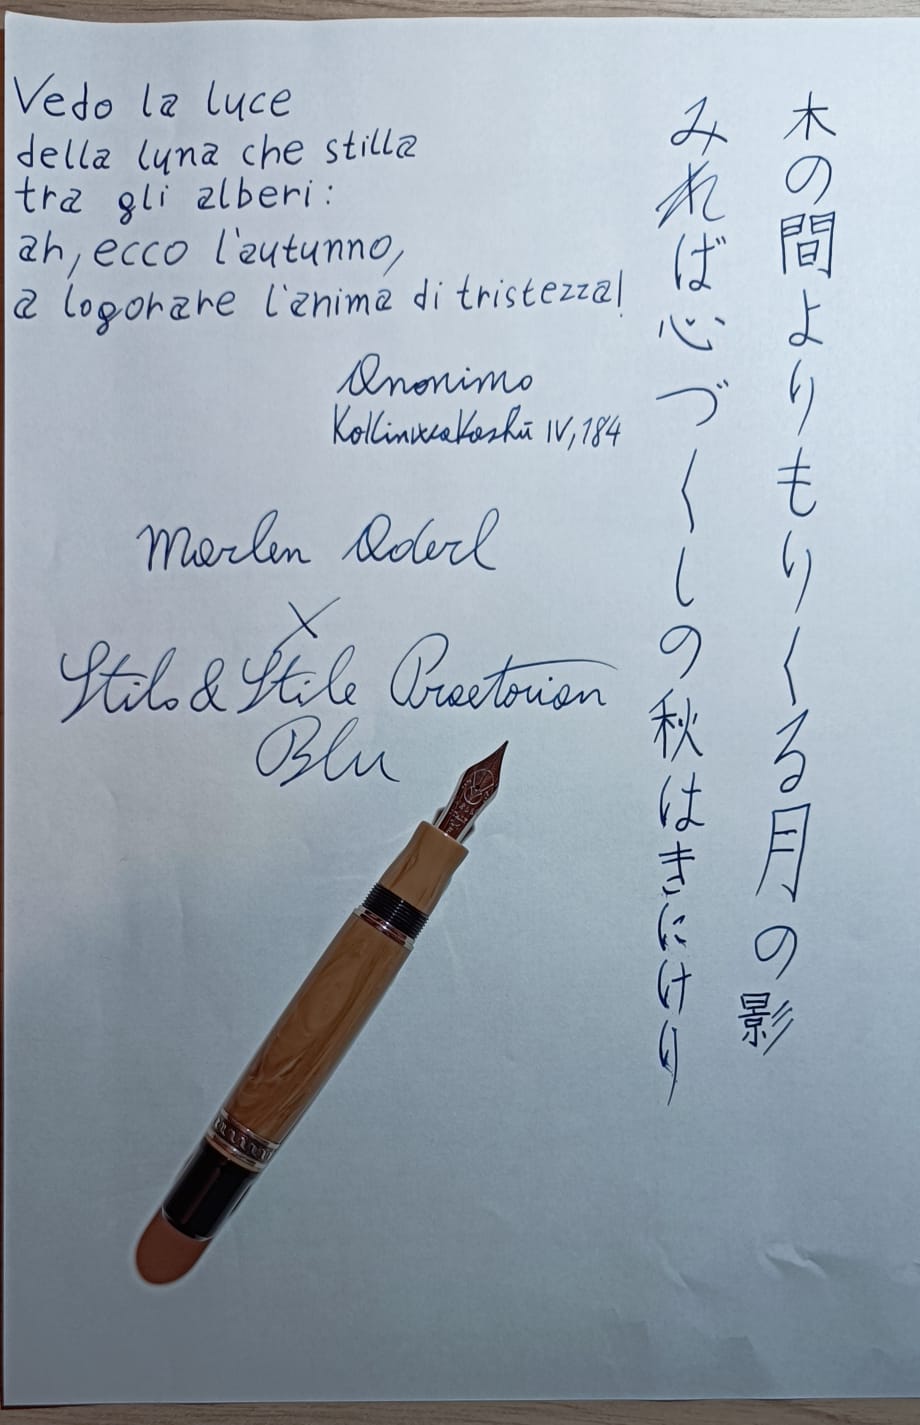 Vedo la luce
della luna che stilla
tra gli alberi:
ah, ecco l'autunno,
a logorare l'anima di tristezza!
Anonimo
Kokinwakashū IV, 184
Marlen Aderl
X
Stilo & Stile Praetorian
Blu
木の間よりもりくる月の影
みれば心づくしの秋はきにけり